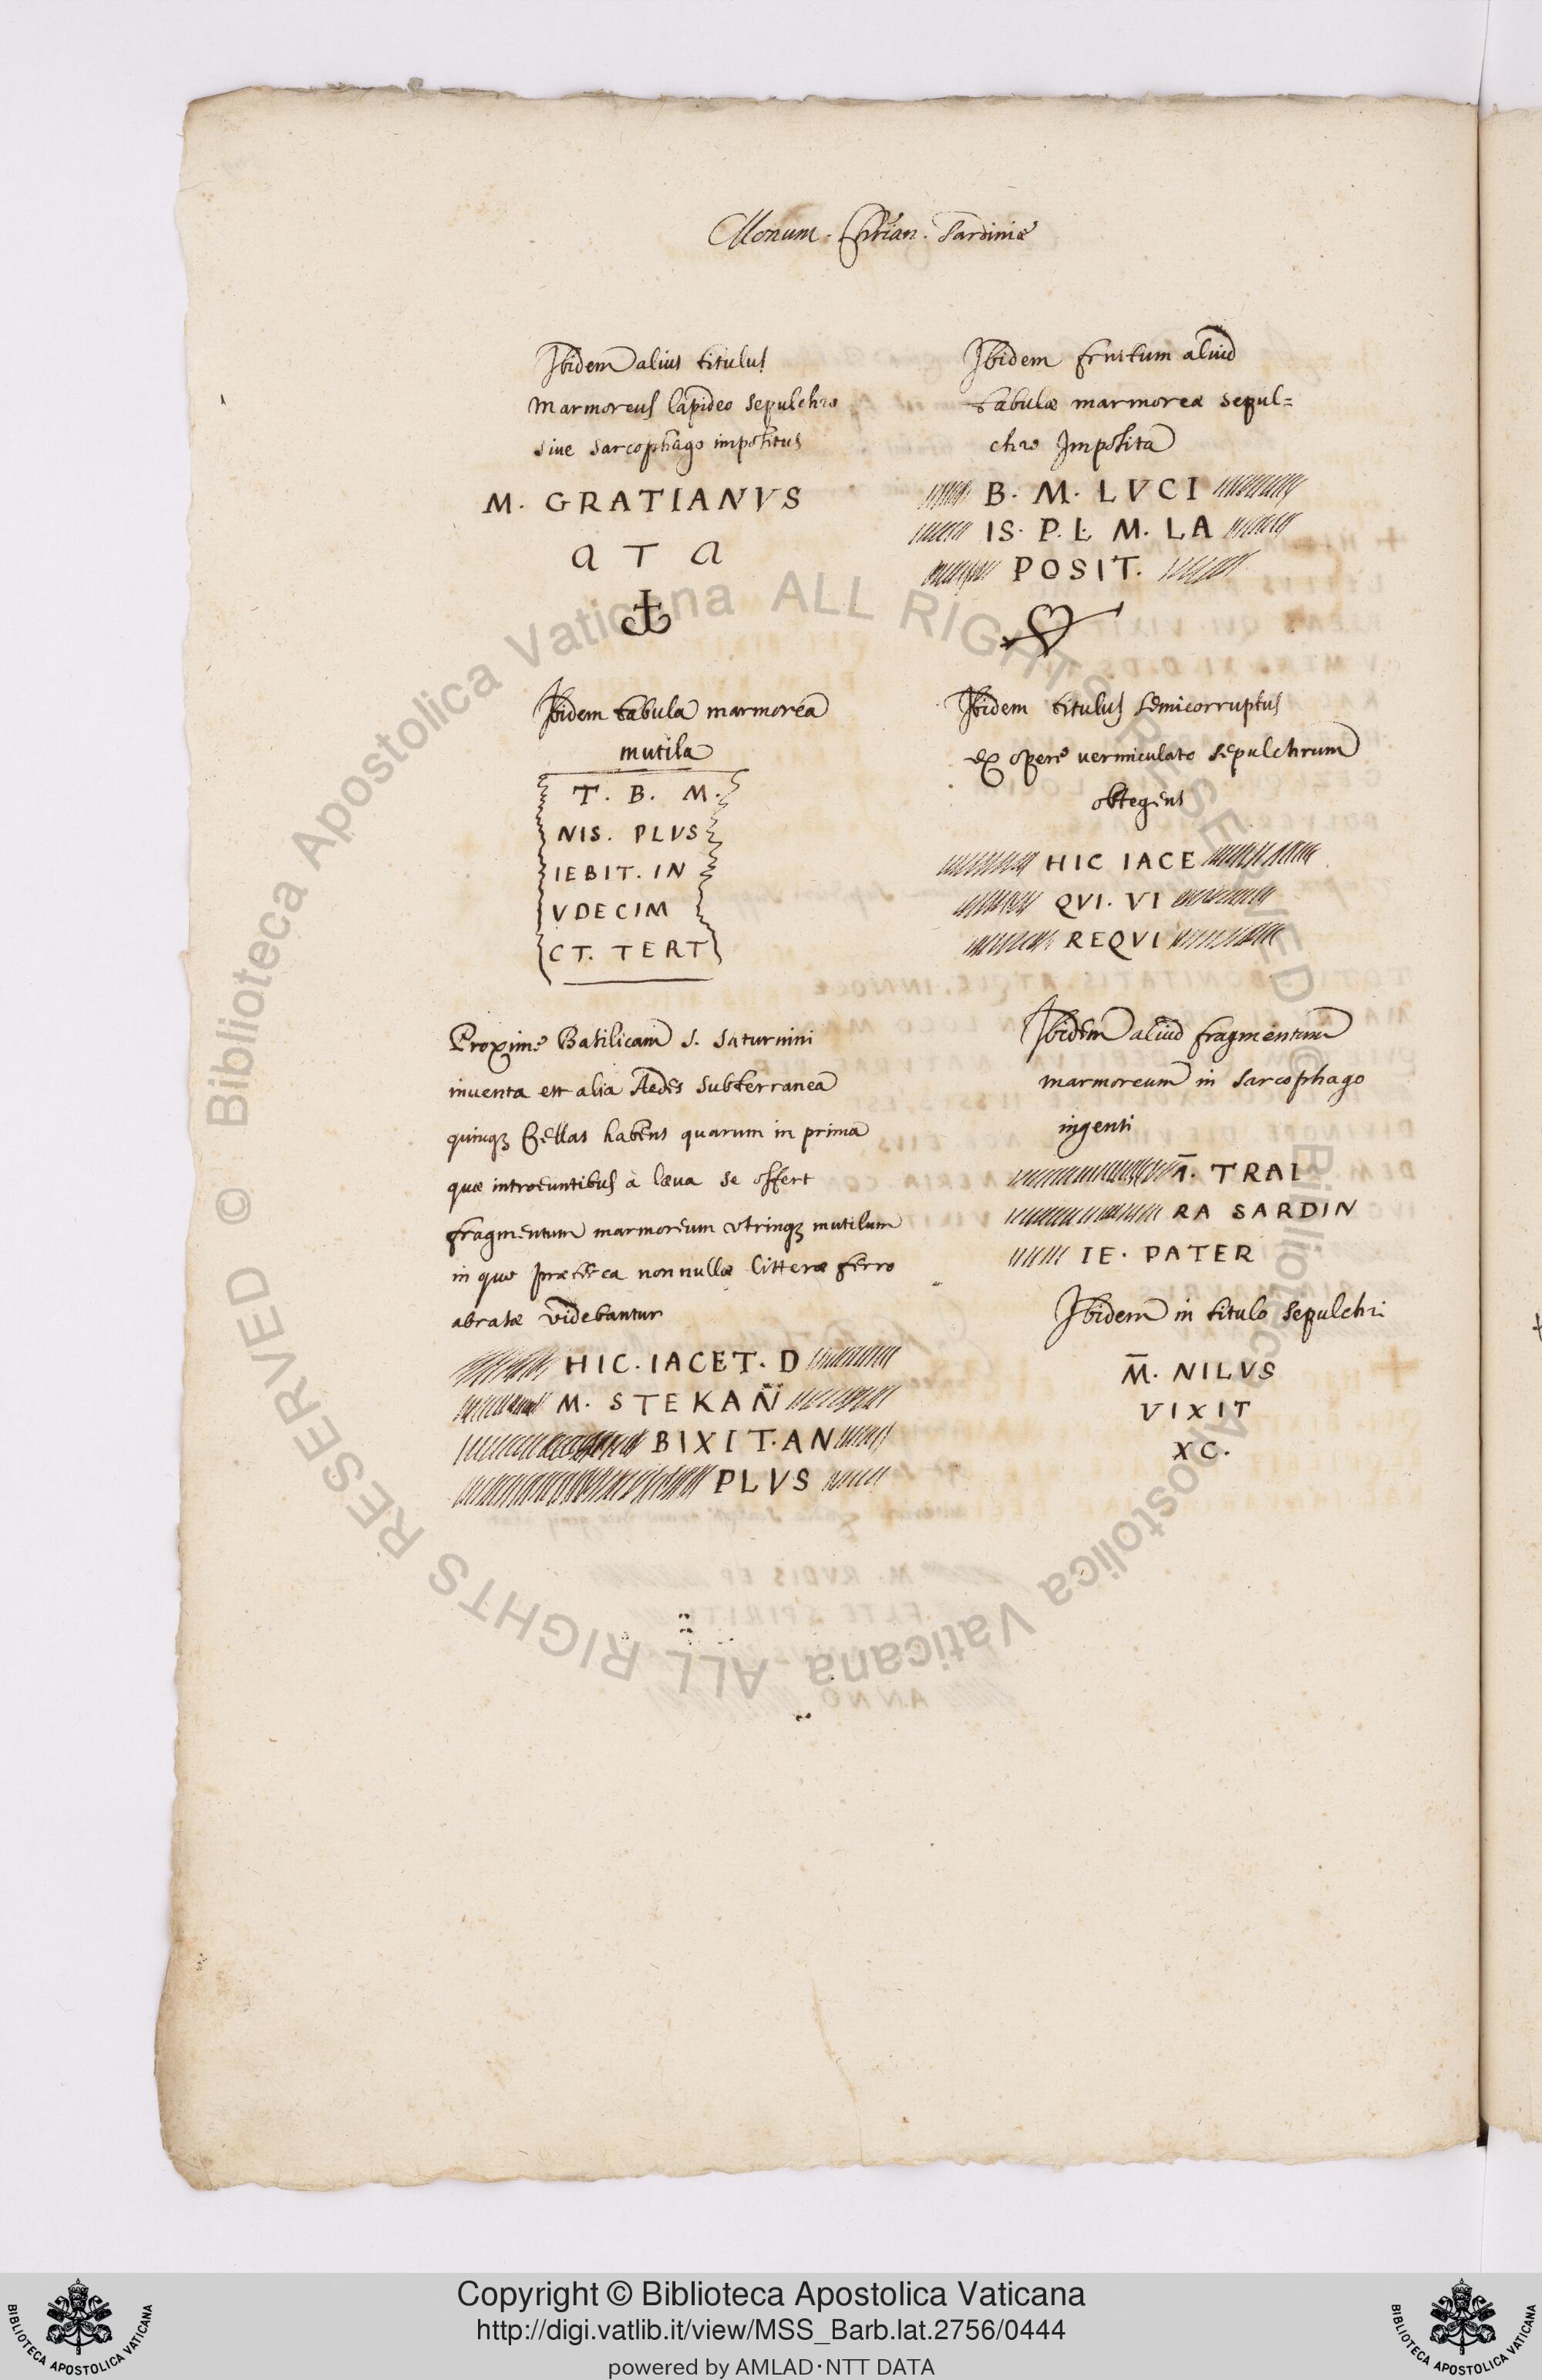 Monum. Cristian. Sardiniæ
Ibidem alius titulus
marmoreus lapideo sepulchro
sive sarcophago impositus
M. GRATIANVS
a T a
Ibidem tabula marmorea
mutila
T. B. M.
NIS. PLVS
IEBIT. IN
VDECIM
CT. TERT
Proxime Basilicam S. Saturnini
inventa est alia Aedes subterranea
quinqꝫ Cellas habens quarum in prima
quæ introeuntibus à læua se offert
fragmentum marmoreum vtrinqꝫ mutilum
in quo præterea nonnullæ litteræ ferro
abratæ videbantur
HIC. IACET. D
M. STEKAN
BIXIT. AN
PLVS
Ibidem frustum aliud
tabulæ marmoreæ sepul=
chro Imposita
B. M. LVCI
IS. P. L. M. LA
POSIT.
Ibidem titulus semicorruptus
ex opere vermiculato sepulchrum
obtegens
HIC IACE
QVI. VI
REQVI
Ibidem aliud fragmentum
marmoreum in sarcophago
ingenti
TRAI
RA SARDIN
IE. PATER
Ibidem in titulo sepulchri
M̄. NILVS
VIXIT
XC.
© Biblioteca Apostolica Vaticana ALL RIGHTS RESERVED © Biblioteca Apostolica Vaticana ALL RIGHTS RESERVED
Copyright © Biblioteca Apostolica Vaticana
http://digi.vatlib.it/view/MSS_Barb.lat.2756/0444
powered by AMLAD·NTT DATA
BIBLIOTECA APOSTOLICA VATICANA
BIBLIOTECA APOSTOLICA VATICANA